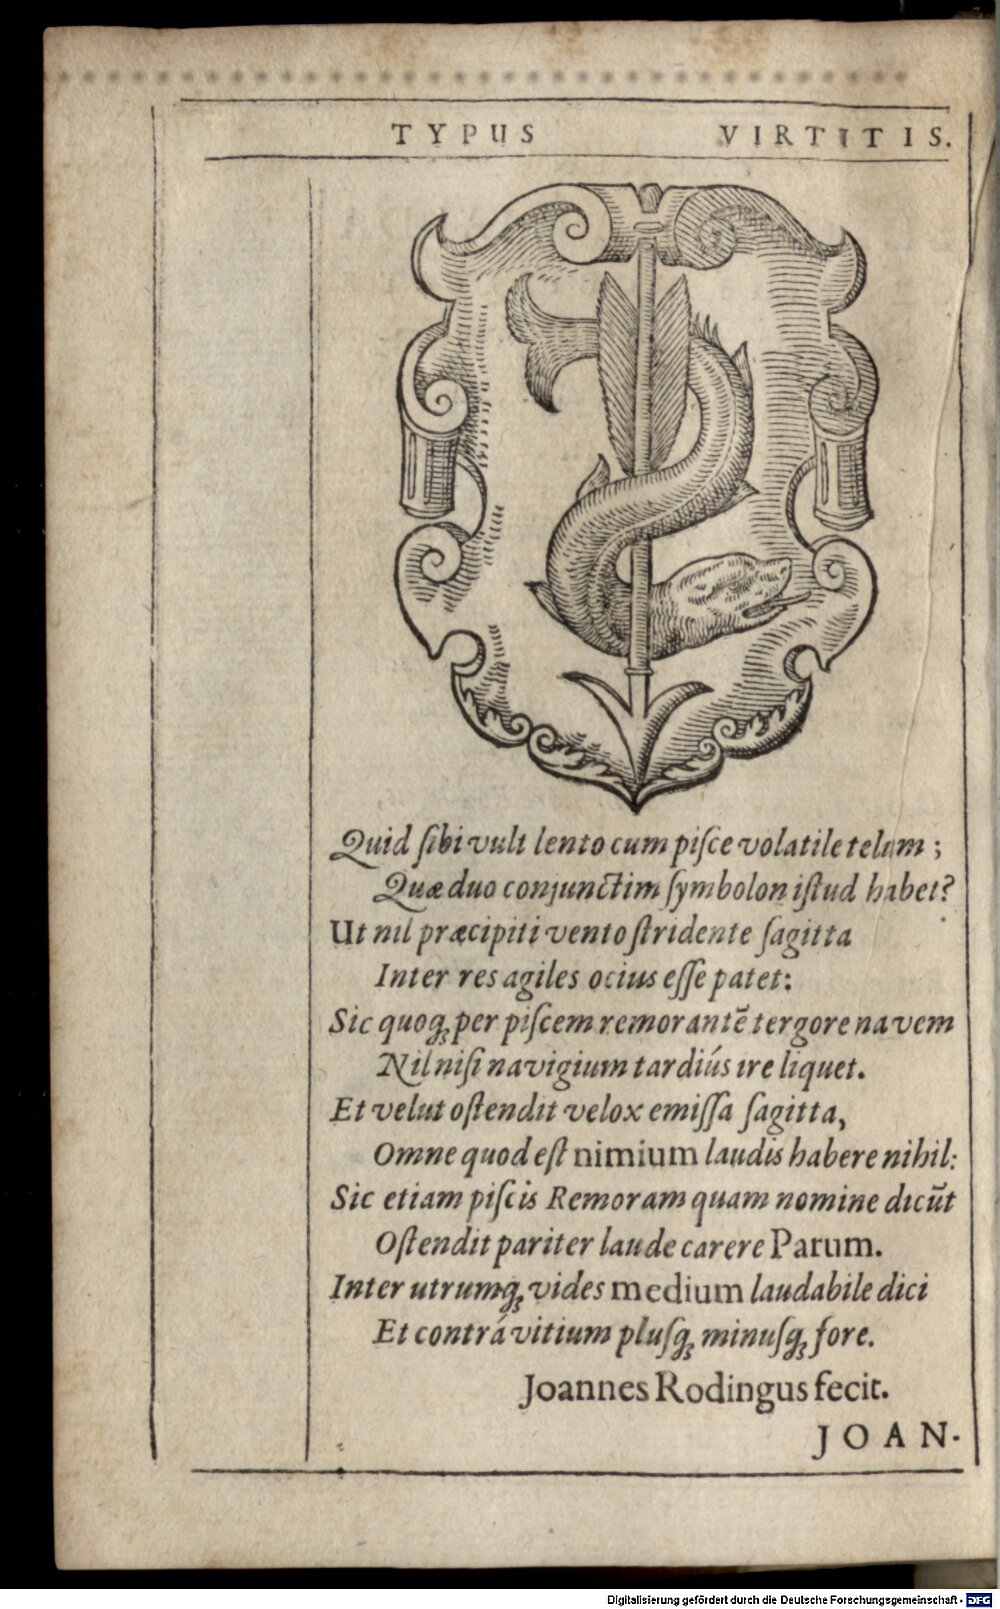 TYPUS VIRTITIS.
Quid ſibi vult lento cum piſce volatile telum;
Quæ duo conjunctim ſymbolon iſtud habet?
Ut nil præcipiti vento ſtridente ſagitta
Inter res agiles ocius eſſe patet:
Sic quoq́; per piſcem remorantē tergore navem
Nil niſi navigium tardiús ire liquet.
Et velut oſtendit velox emiſſa ſagitta,
Omne quod eſt nimium laudis habere nihil:
Sic etiam piſcis Remoram quam nomine dicūt
Oſtendit pariter laude carere Parum.
Inter utrumq́; vides medium laudabile dici
Et contrá vitium pluſq́; minuſq́; fore.
Joannes Rodingus fecit.
JOAN-
Digitalisierung gefördert durch die Deutsche Forschungsgemeinschaft - DFG